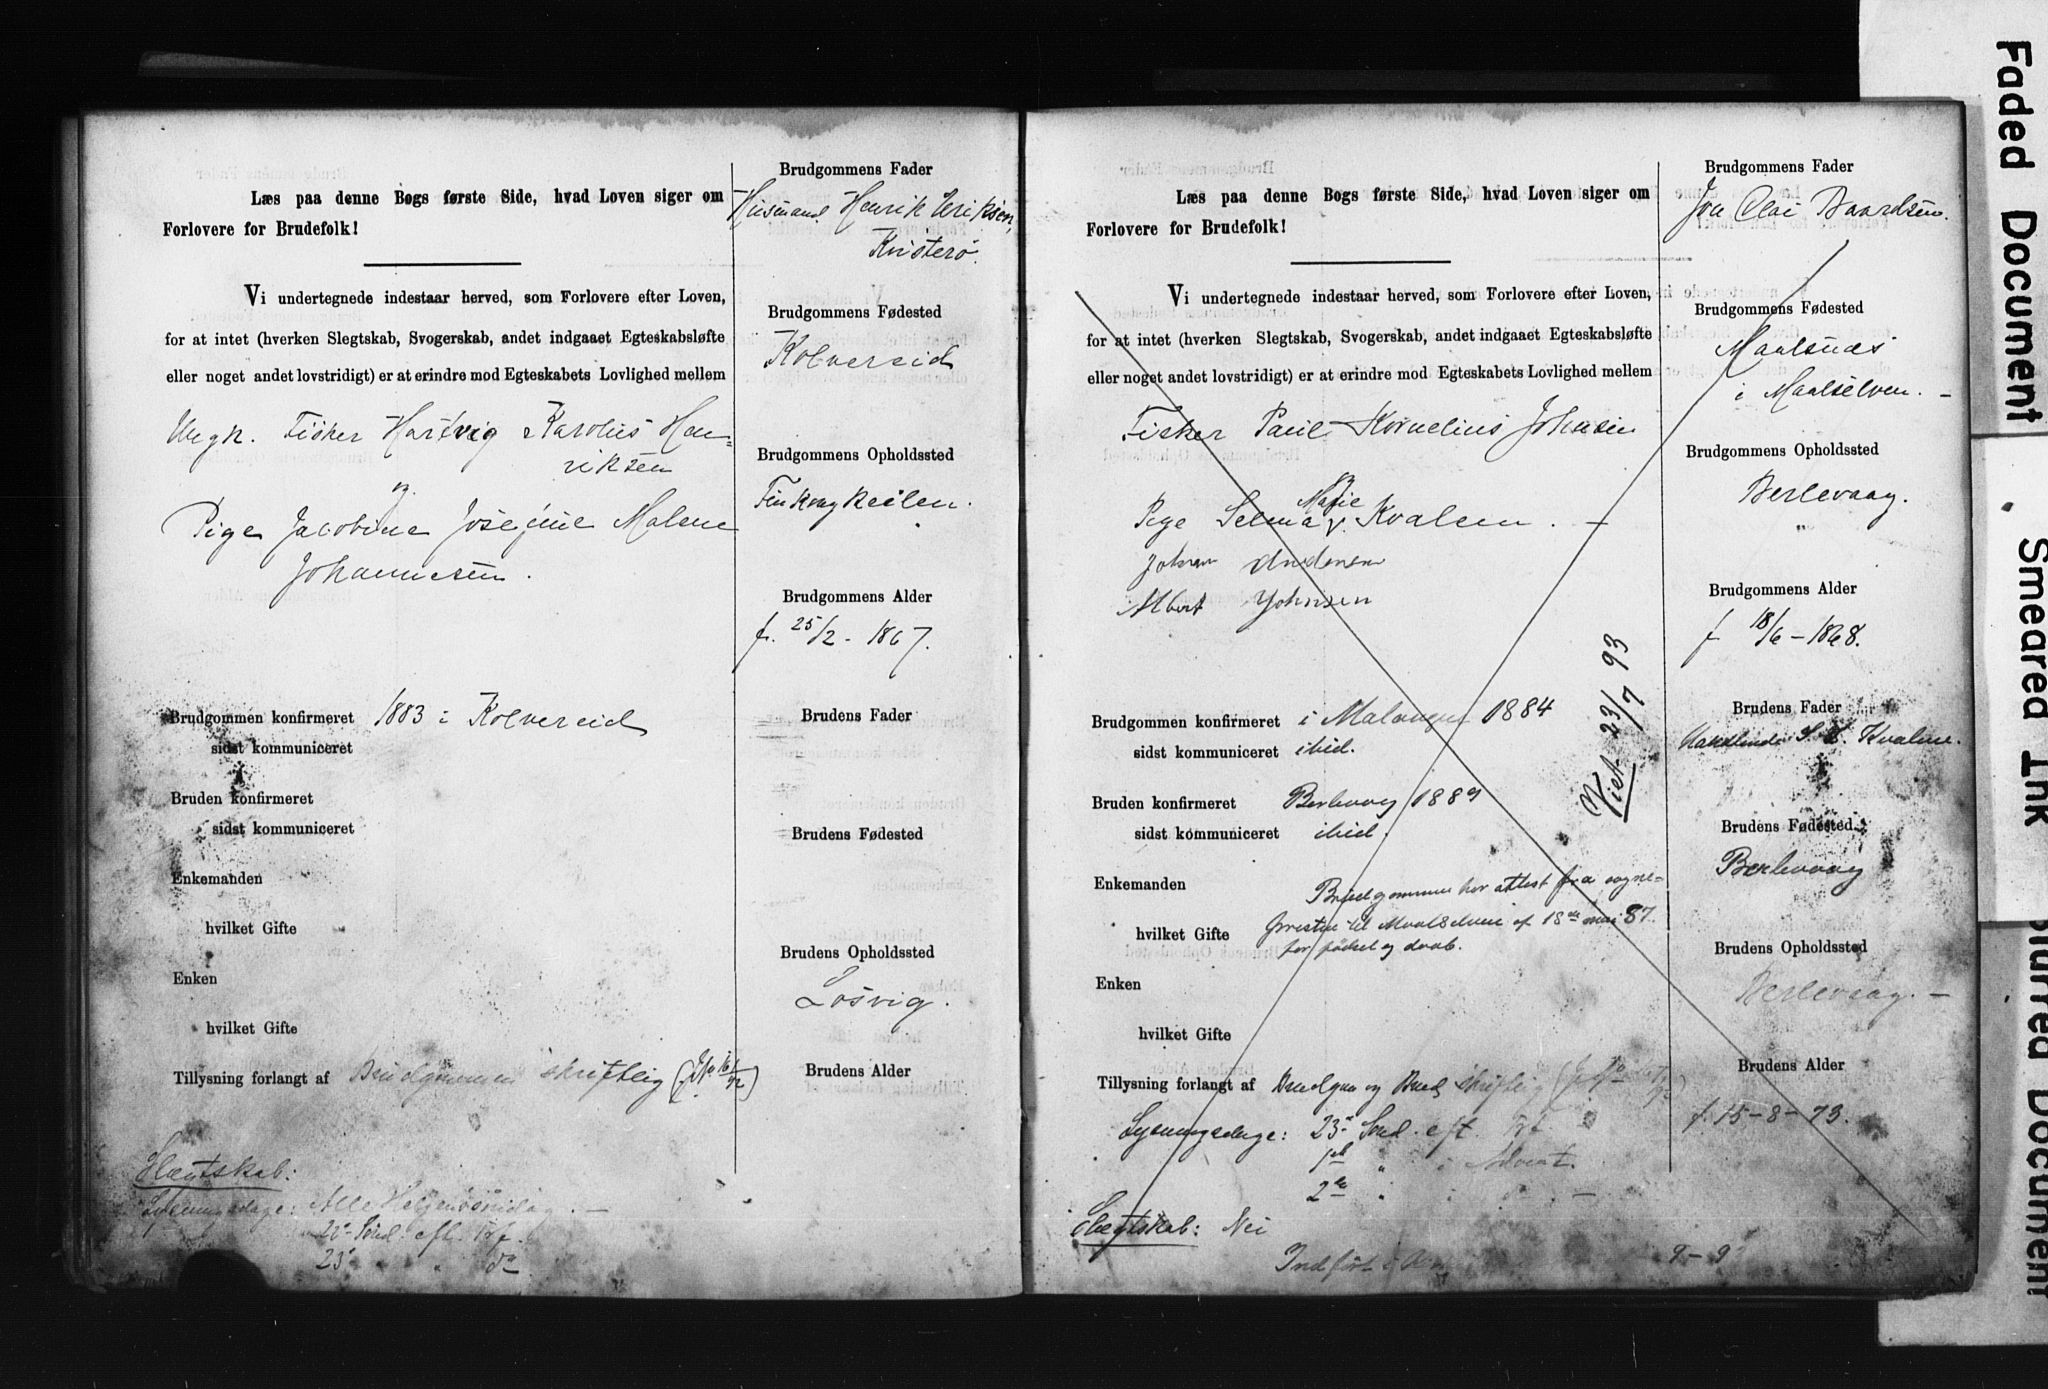 Læs paa denne Bogs første Side, hvad Loven siger om
Forlovere for Brudefolk!
Vi undertegnede indestaar herved, som Forlovere efter Loven,
for at intet (hverken Slegtskab, Svogerskab, andet indgaaet Egteskabsløfte
eller noget andet lovstridigt) er at erindre mod Egteskabets Lovlighed mellem
Ungk. Fisker Hartvig Karolus Hen=
riksen
og
Pige Jacobine Josefine Malene
Johannesen.
Brudgommen konfirmeret 1883 i Kolvereid
sidst kommuniceret
Bruden konfirmeret
sidst kommuniceret
Enkemanden
hvilket Gifte
Enken
hvilket Gifte
Tillysning forlangt af Brudgommen skriftlig
Slægtskab:
Lysningsdage: Alle Helgensønndag. —
22de Sønd. eft. Trf.
23de " do
Brudgommens Fader
Husmand Henrik Eriksen,
Kvisterø.
Brudgommens Fødested
Kolvereid
Brudgommens Opholdssted
Finkongkeilen.
Brudgommens Alder
f. 25/2 - 1867.
Brudens Fader
Brudens Fødested
Brudens Opholdssted
Losvig.
Brudens Alder
Læs paa denne Bogs første Side, hvad Loven siger om
Forlovere for Brudefolk!
Vi undertegnede indestaar herved, som Forlovere efter Loven,
for at intet (hverken Slegtskab, Svogerskab, andet indgaaet Egteskabsløfte
eller noget andet lovstridigt) er at erindre mod Egteskabets Lovlighed mellem
Fisker Paul Kornelius Johnsen
og
Pige Selma Marie Kvalsen. —
Johan Andersen
Albert Johnsen
Viet 23/7 93
Brudgommen konfirmeret i Malangen 1884
sidst kommuniceret ibid.
Bruden konfirmeret Berlevaag 1889
sidst kommuniceret ibid.
Enkemanden
Brudgommen har attest fra sogne=
præsten til Maalselven af 18de mai 87
for fødsel og daab.
hvilket Gifte
Enken
hvilket Gifte
Tillysning forlangt af Brudgom og Brud skriftlig
Lysningsdage: 23de Sønd. eft. Trf.
1ste " i Advent.
2den " i do. —
Slægtskab: Nei
Indført i
Brudgommens Fader
Jon Olai Baardsen.
Brudgommens Fødested
Maalsnes
i Maalselven. —
Brudgommens Opholdssted
Berlevaag.
"
Brudgommens Alder
f. 18/6 - 1868.
Brudens Fader
S. Kvalsen.
Brudens Fødested
Berlevaag
Brudens Opholdssted
Berlevaag. —
Brudens Alder
f. 15-8-73.
Faded Document
Smeared Ink
Blurred Document